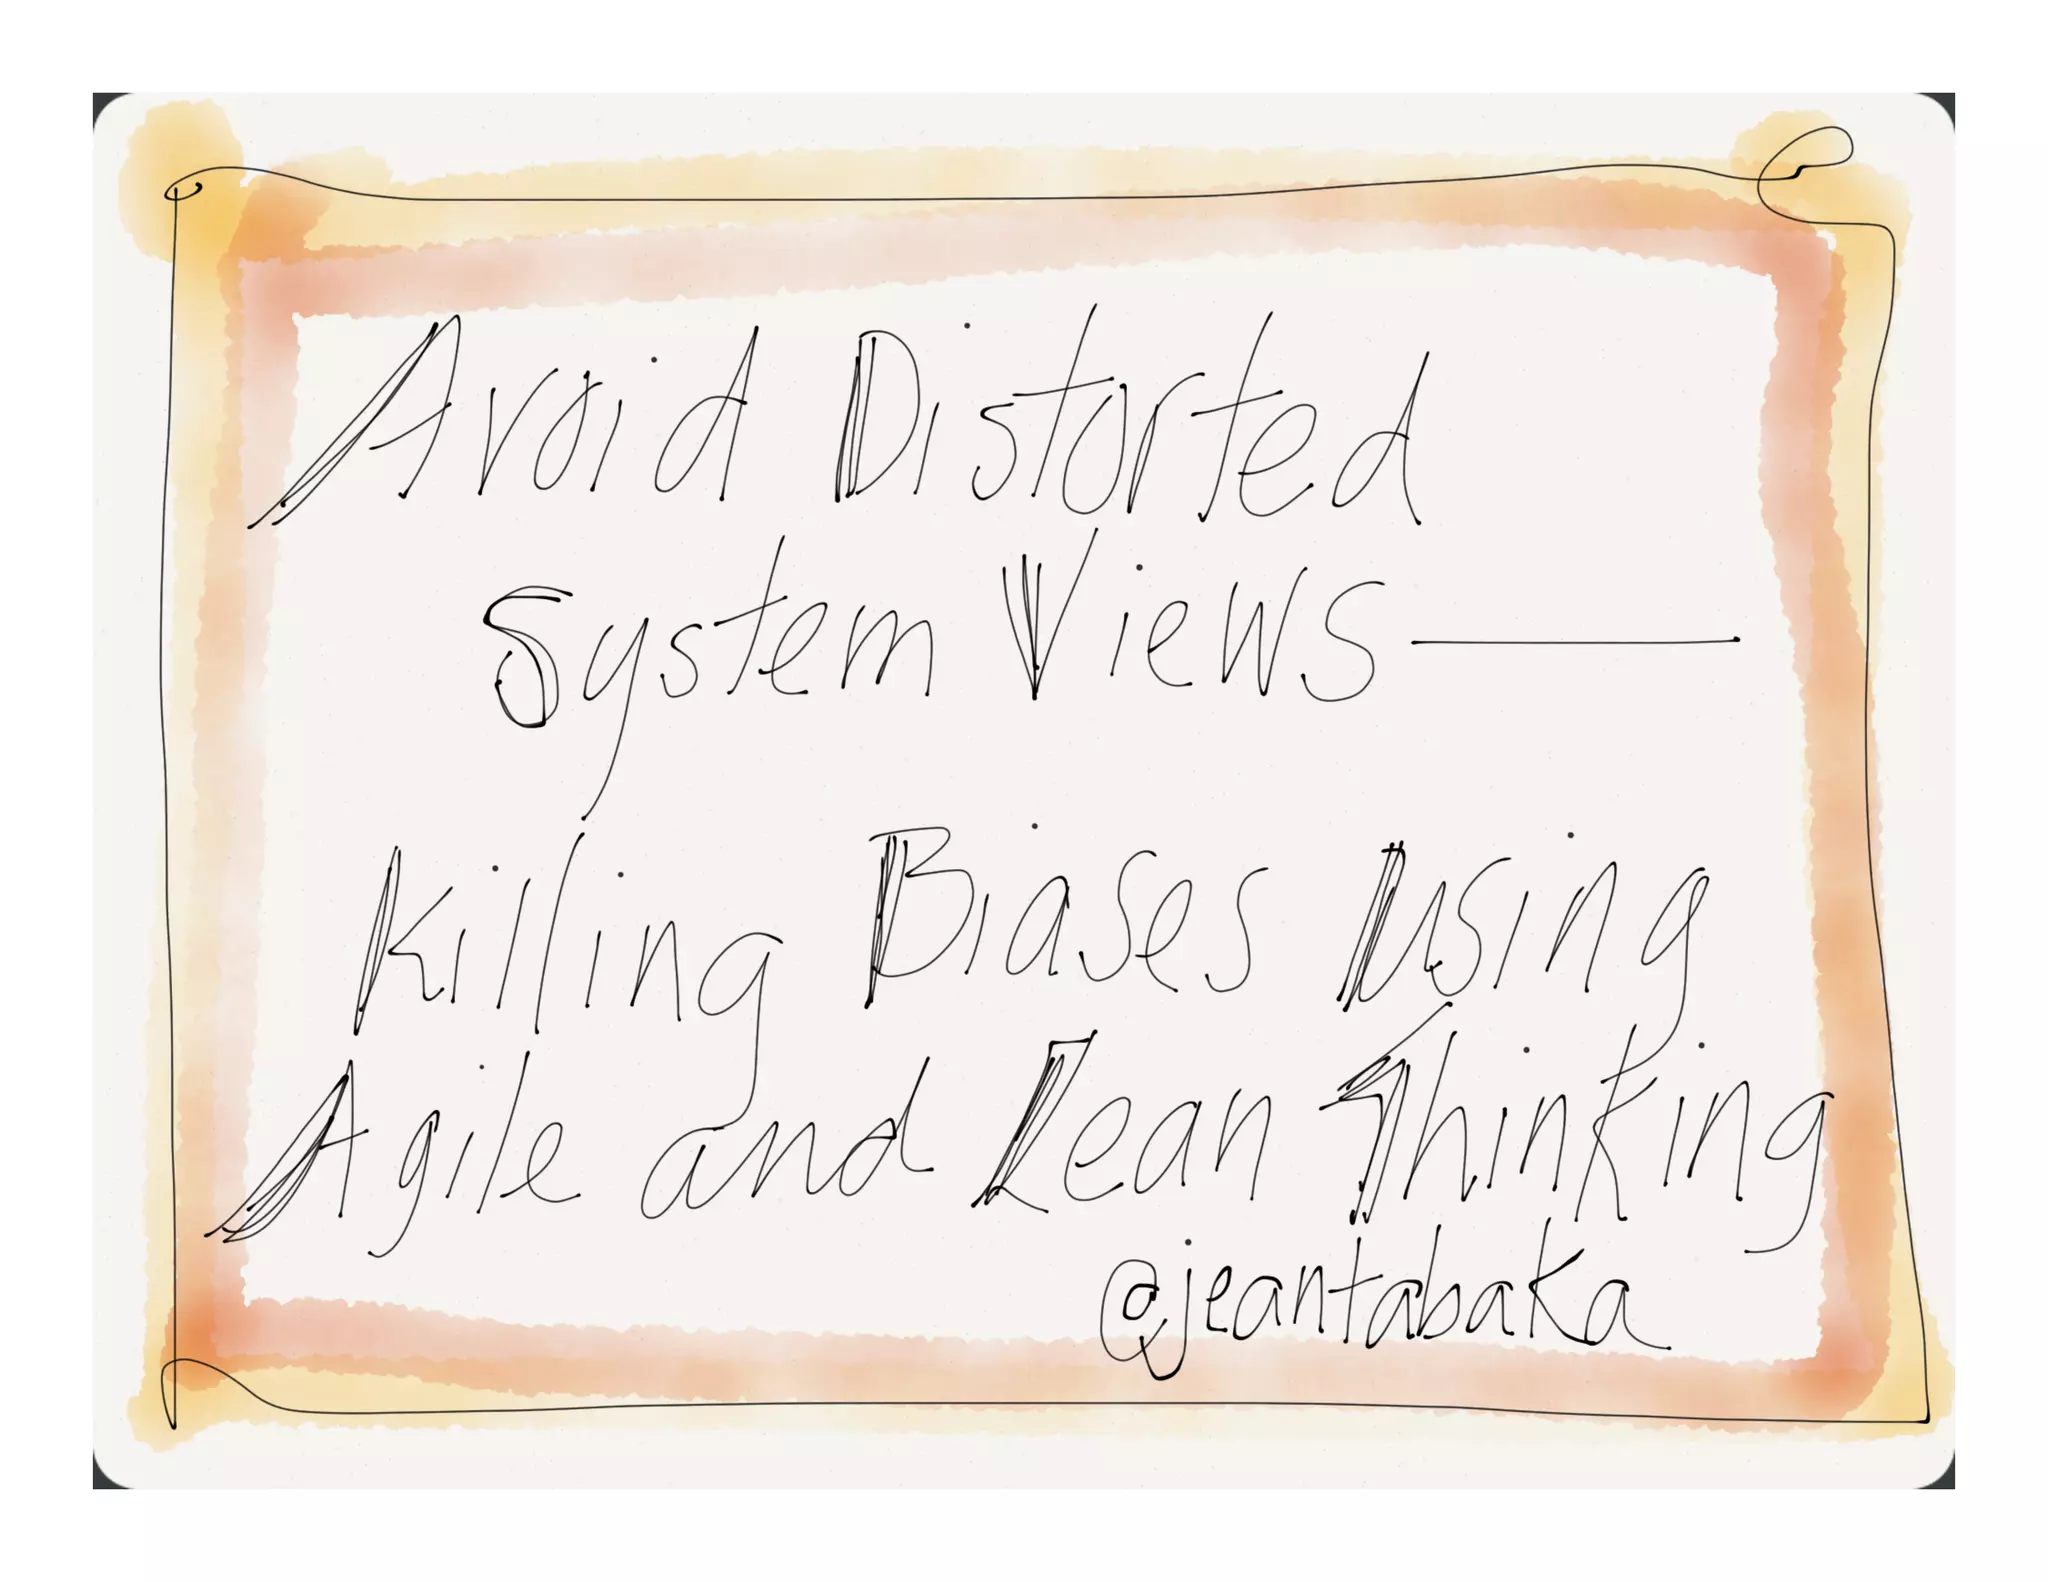 Avoid Distorted
System Views —
Killing Biases Using
Agile and Lean Thinking
@jeantabaka